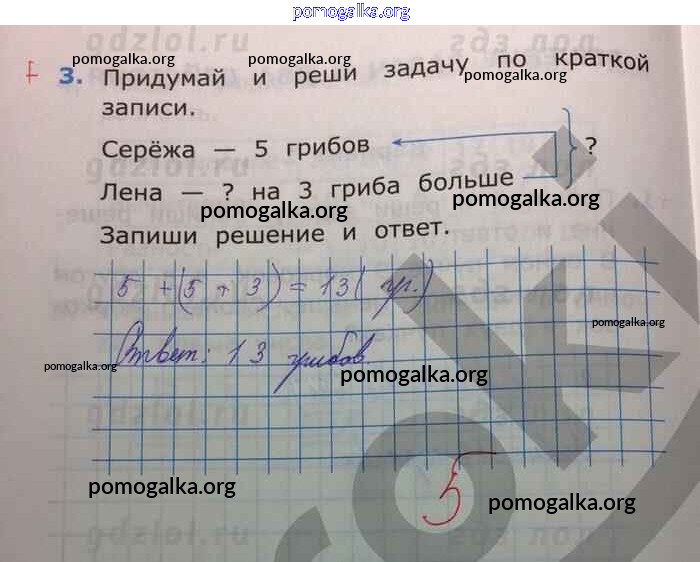 pomogalka.org
gdzlol.ru
pomogalka.org pomogalka.org
3. Придумай и реши задачу по краткой
pomogalka.org
записи.
Серёжа — 5 грибов
?
Лена — ? на 3 гриба больше
pomogalka.org pomogalka.org
Запиши решение и ответ.
5 + (5 + 3) = 13 (гр.)
pomogalka.org
Ответ: 13 грибов
pomogalka.org
pomogalka.org
gdzlol.ru
pomogalka.org
5
pomogalka.org
gdzlol.ru